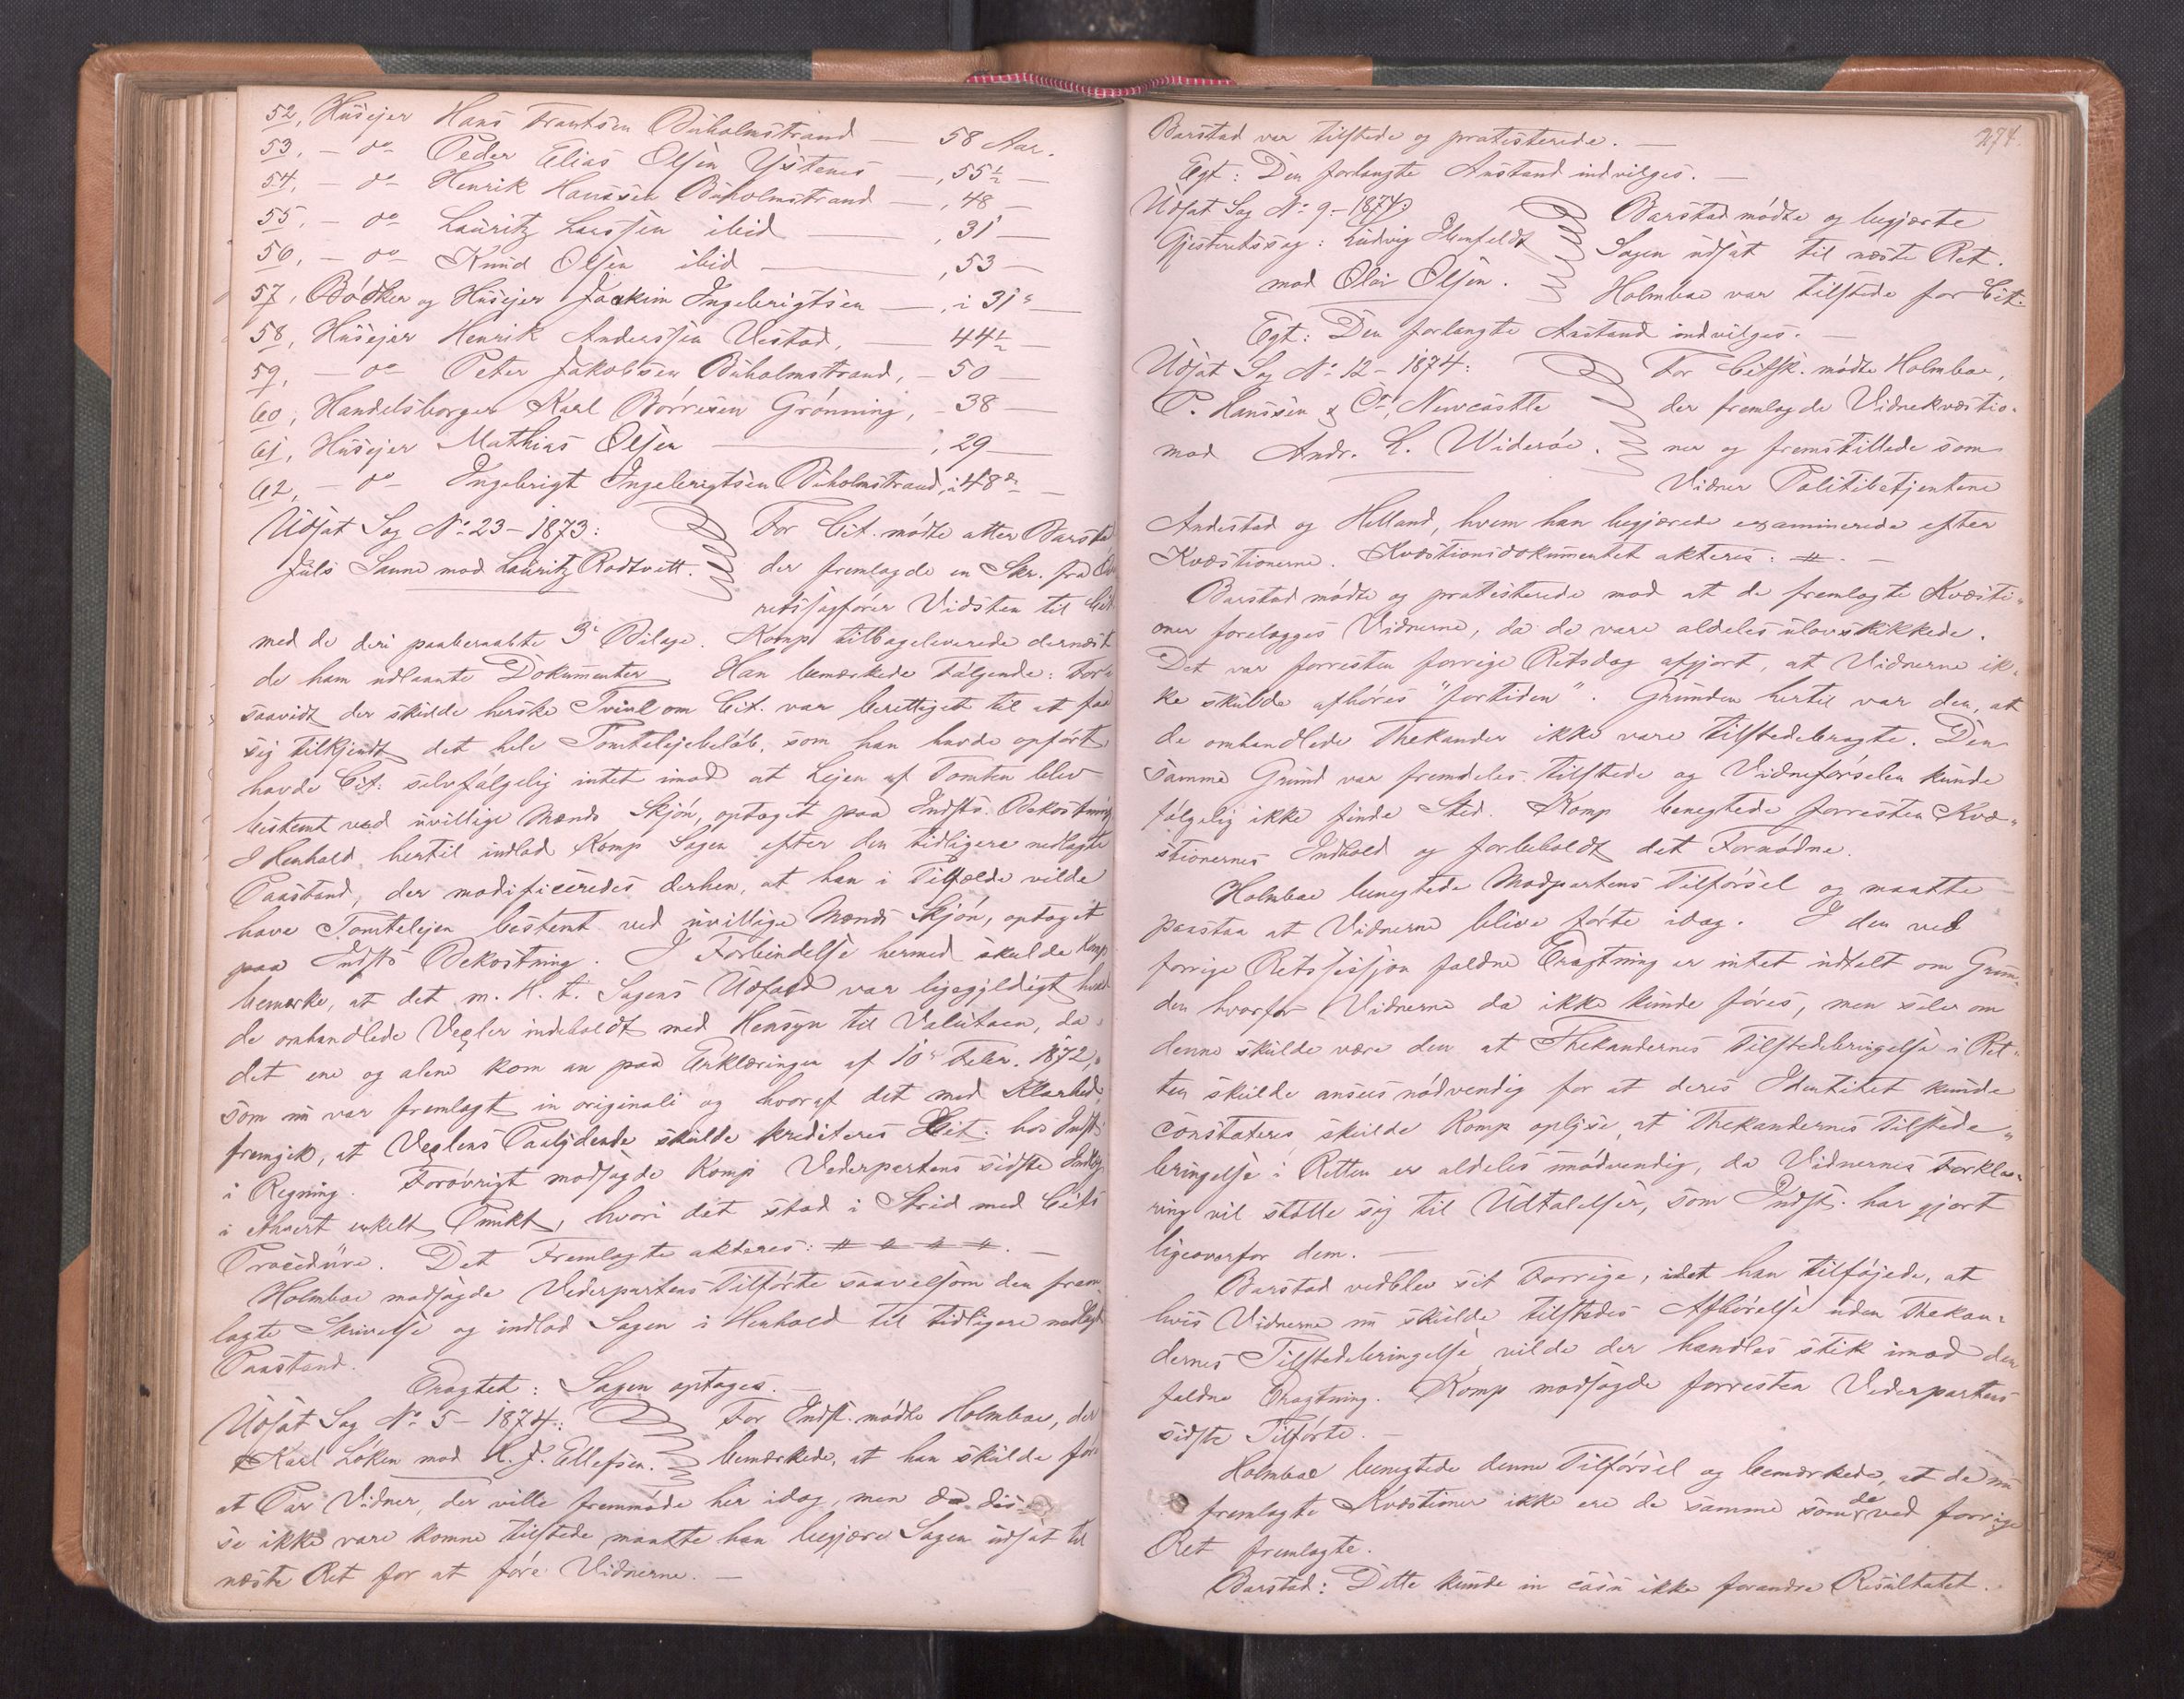 52, Husejer Hans Frantsen Buholmstrand — 58 Aar.
53, — do Peder Elias Olsen Ystenes —, 55½ —
54, — do Henrik Hanssen Buholmstrand —, 48 —
55, — do Lauritz Larssen ibid —, 31 —
56, — do Knud Olsen ibid —, 53 —
57, Bödker og Husejer Joakim Ingebrigtsen —, i 31te —
58, Husejer Henrik Anderssen Vestad, — 44½ —
59, — do Peter Jakobsen Buholmstrand, — 50 —
60, Handelsborger Karl Börresen Grönning, — 38 —
61, Husejer Mathias Olsen —, 29 —
62, — do Ingebrigt Ingebrigtsen Buholmstrand, i 48de —
Udsat Sag No 23 - 1873: For Cit. mödte atter Barstad
Juls Saune mod Lauritz Rodtvitt. der fremlagde en Skr. fra Ove
retssagförer Vidsten til Cit.
med de deri paaberaabte 3 Bilage. Komp tilbageleverede dernæst
de ham udlaante Dokumenter. Han bemærkede Fölgende: For-
saavidt der skulde herske Tvivl om Cit. var berettiget til at faa
sig tilkjendt det hele Tomtelejebelöb, som han havde opfört
havde Cit. selvfölgelig intet imod at Lejen af Tomten blev
bestemt ved uvillige Mænds Skjön, optaget paa Indsts. Bekostning
I Henhold hertil indlod Komp Sagen efter den tidligere nedlagte
Paastand, der modificeredes derhen, at han i Tilfælde vilde
have Tomtelejen bestemt ved uvillige Mænds Skjön, optaget
paa Indsts Bekostning. I Forbindelse hermed skulde Komp
bemærke, at det m. H. t. Sagens Udfald var ligegjildigt hvad
de omhandlede Vexler indeholdt med Hensyn til Valutaen, da
det ene og alene kom an paa Erklæringen af 10de Febr. 1872,
som nu var fremlagt in originali og hvoraf det med Klarhed
fremgik, at Vexlens Paalydende skulde krediteres Cit. hos Indst.
i Regning. Foróvrigt modsagde Komp Vederpartens sidste Indlæg
i ethvert enkelt Punkt, hvori det stod i Strid med Cits
Procedure. Det Fremlagte akteres: # # # #. —
Holmboe modsagde Vederpartens Tilförte saavelsom den frem-
lagte Skrivelse og indlod Sagen i Henhold til tidligere nedlagt
Paastand.
Eragtet: Sagen optages. —
Udsat Sag No 5 - 1874: For Indst. mödte Holmboe, der
Karl Löken mod K. J. Ellefsen. bemærkede, at han skulde före
et Par Vidner, der ville fremmöde her idag, men da dis-
se ikke vare komne tilstede maatte han begjære Sagen udsat til
næste Ret for at före Vidnerne. —
274.
Barstad var tilstede og protesterede. —
Egt: Den forlangte Anstand indvilges. —
Udsat Sag No 9 - 1874: Barstad mödte og begjærte
Gjesteretssag: Ludvig Ebenfeldt Sagen udsat til næste Ret.
mod Olai Olsen. Holmboe var tilstede for Cit.
Egt: Den forlangte Anstand indvilges. —
Udsat Sag No 12 - 1874: For Citsk. mödte Holmboe,
P. Hanssen & Co, Newcastle der fremlagde Vidnekvæstio-
mod Andr. L. Wideröe. ner og fremstillede som
Vidner Politibetjentene
Andestad og Helland, hvem han begjærede examinerede efter
Kvæstionerne. Kvæstionsdokumentet akteres: #. —
Barstad mödte og protesterede mod at de fremlagte Kvæsti-
oner forelægges Vidnerne, da de vare aldeles ulovskikkede.
Det var forresten forrige Retsdag afgjort, at Vidnerne ik-
ke skulde afhöres "fortiden". Grunden hertil var den, at
de omhandlede Thekander ikke vare tilstedebragte. Den
samme Grund var fremdeles tilstede og Vidneförselen kunde
fölgelig ikke finde Sted. Komp benegtede forresten Kvæ-
stionernes Indhold og forbeholdt det Fornödne.
Holmboe benegtede Modpartens Tilförsel og maatte
paastaa at Vidnerne blive förte idag. I den ved
forrige Retssession faldne Eragtning er intet udtalt om Grun-
den hvorfor Vidnerne da ikke kunde föres, men selv om
denne skulde være den at Thekandernes Tilstedebringelse i Ret-
ten skulde ansees nödvendig for at deres Identitet kunde
constateres, skulde Komp oplyse, at Thekandernes Tilstede-
bringelse i Retten er aldeles unödvendig, da Vidnernes Forkla-
ring vil stötte sig til Udtalelser, som Indst. har gjort
ligeoverfor dem. —
Barstad vedblev sit Forrige, idet han tilföjede, at
hvis Vidnerne nu skulde tilstedes Afhörelse uden Thekan-
dernes Tilstedebringelse, vilde der handles stik imod den
faldne Eragtning. Komp modsagde forresten Vederpartens
sidste Tilförte. —
Holmboe benegtede denne Tilförsel og bemærkede, at de nu
fremlagte Kvæstioner ikke ere de samme som de ved forrige
Ret fremlagte.
Barstad: Dette kunde in casu ikke forandre Resultatet.